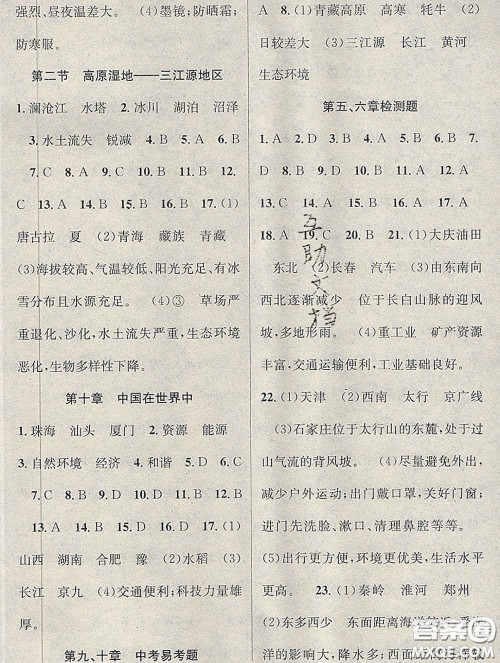 强烈、昼夜温差大。 (4)墨镜;防晒霜;
防寒服。
第二节 高原湿地——三江源地区
1.澜沧江 水塔 2.冰川 湖泊 沼泽
3.水土流失 锐减 4.B 5.A 6.A
7.A 8.A 9.C 10.B 11.B 12.B
13.A 14.D 15.A 16.B 17.(1)
唐古拉 夏 (2)青海 藏族 青藏
(3)海拔较高、气温较低、阳光充足、有冰
雪分布且水源充足。 (4)③ 草场严
重退化、沙化,水土流失严重,生态环境
恶化,生物多样性下降。
第十章 中国在世界中
1.珠海 汕头 厦门 2.资源 能源
3.自然环境 经济 4.和谐 5.D 6.C
7.D 8.C 9.B 10.D 11.D 12.B
13.A 14.D 15.D 16.D 17.(1)
山西 湖南 合肥 豫 (2)水稻 (3)
长江 京九 (4)交通便利;科技力量雄
厚。
第九、十章 中考易考题
8.A 9.(1)青藏高原 高寒 牦牛 (2)
日较差大 (3)三江源 长江 黄河
生态环境
第五、六章检测题
1.A 2.D 3.B 4.A 5.B 6.D 7.
D 8.D 9.A 10.D 11.A 12.D
13.C 14.A 15.B 16.B 17.C
18.A 19.C 20.B 21.(1)大庆油田
东北 (2)长春 汽车 (3)由东南向
西北逐渐减少 位于长白山脉的迎风
坡,多地形雨。 (4)重工业 矿产资源
丰富,交通运输便利,工业基础良好。
22.(1)天津 (2)西南 太行 京广线
(3)石家庄位于太行山的东麓,处于越
过山气流的背风坡。 (4)尽量避免外出,
减少户外运动;出门戴口罩,回家进
门先洗脸、漱口、清理鼻腔等等。
(5)出行更方便,环境更优美,生活水平
更高。 23.(1)秦岭 淮河 郑州
(2)东多西少 东面距离海洋
海风影响大,降水多;
互助文档
答案圈
MXQE.COM